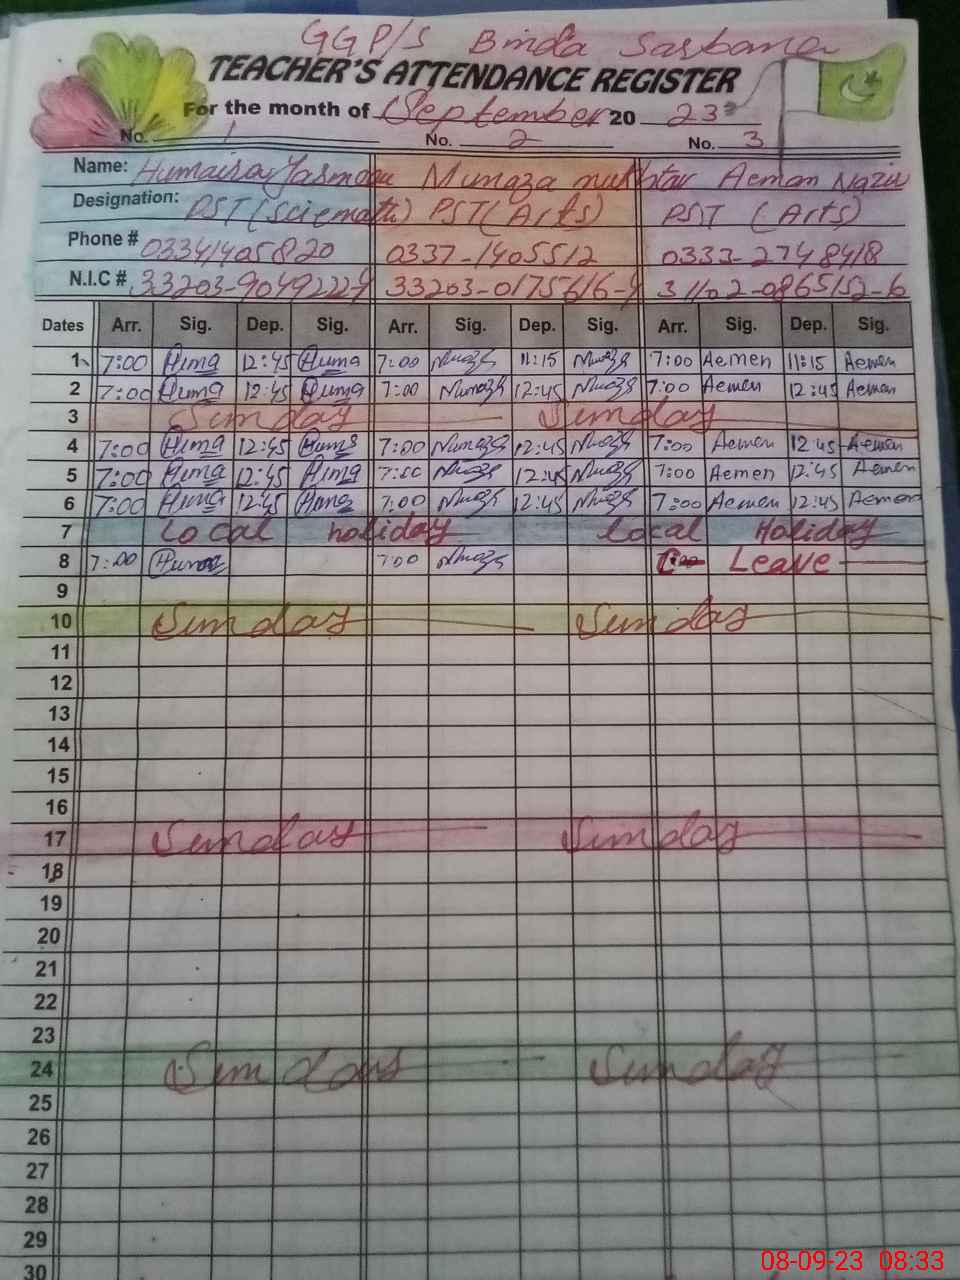 GGP/S Binda Sarbana
TEACHER'S ATTENDANCE REGISTER
For the month of September 20 23
No. 1 No. 2 No. 3
Name: Humaira Yasmeen Munaza mukhtar Aeman Nazir
Designation: PST (Sciemath) PST (Arts) PST (Arts)
Phone # 03341405820 0337-1405512 0333-2748418
N.I.C # 33203-9049222-4 33203-0175616-4 31102-0865152-6
Dates Arr. Sig. Dep. Sig. Arr. Sig. Dep. Sig. Arr. Sig. Dep. Sig.
1 7:00 Huma 12:45 Huma 7:00 11:15 7:00 Aemen 11:15 Aemen
2 7:00 Huma 12:45 Huma 7:00 12:45 7:00 Aemen 12:45 Aemen
3 Sunday Sunday
4 7:00 Huma 12:45 Huma 7:00 12:45 7:00 Aemen 12:45 Aemen
5 7:00 Huma 12:45 Huma 7:00 12:45 7:00 Aemen 12:45 Aemen
6 7:00 Huma 12:45 Huma 7:00 12:45 7:00 Aemen 12:45 Aemen
7 Local holiday Local Holiday
8 7:00 Huma 7:00 Leave
9
10 Sunday Sunday
11
12
13
14
15
16
17 Sunday Sunday
18
19
20
21
22
23
24 Sunday Sunday
25
26
27
28
29
30
08-09-23 08:33